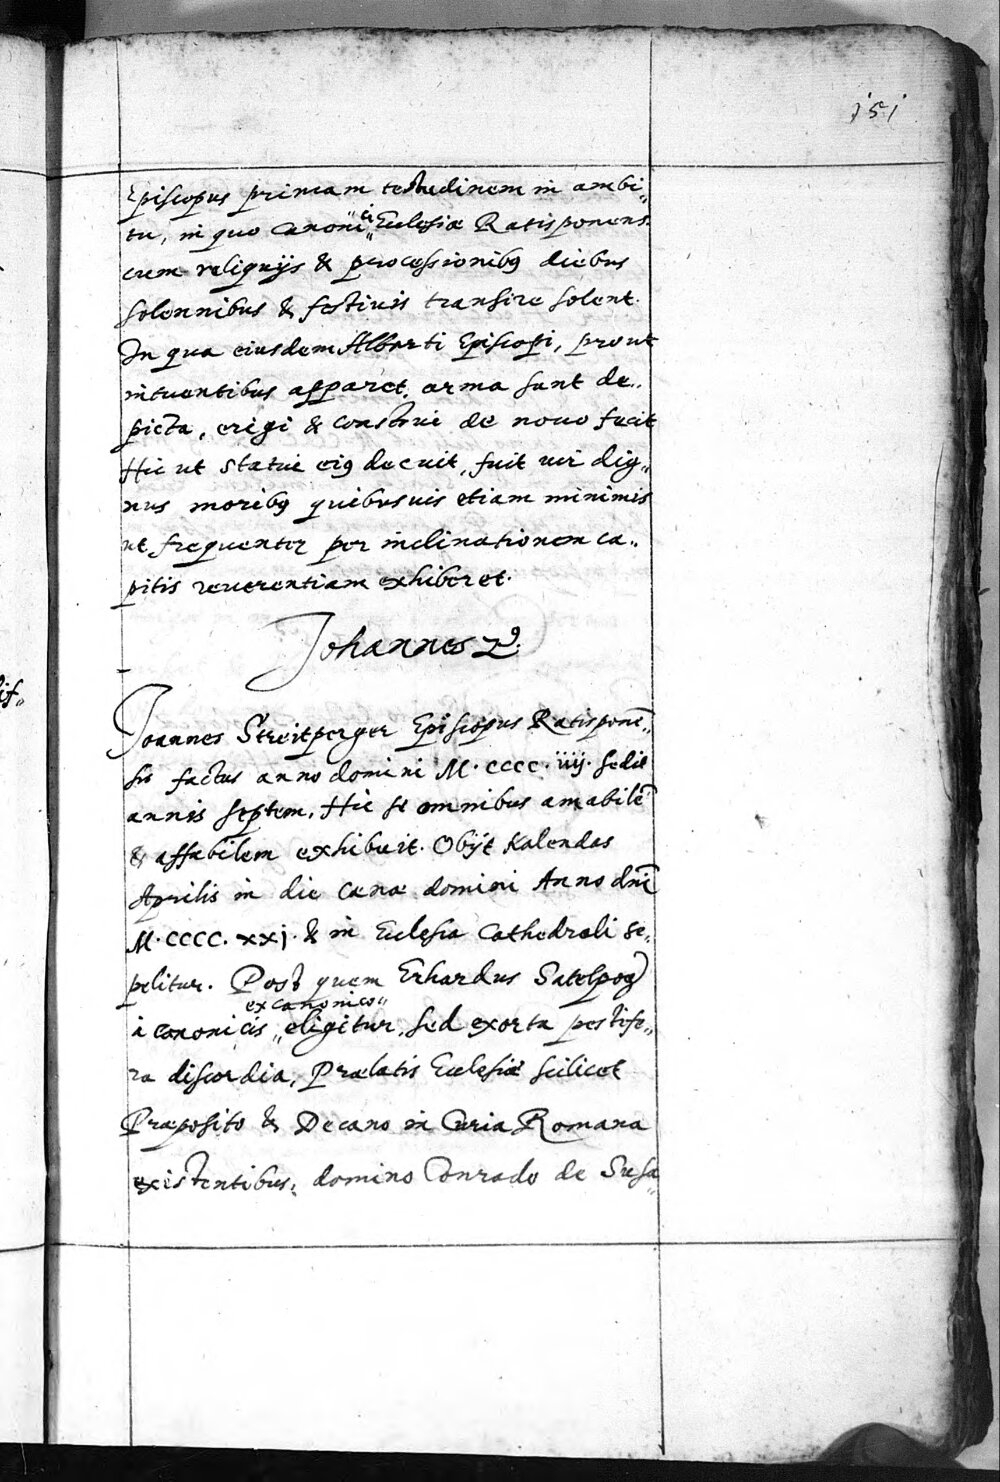 151
Episcopus primam testudinem in ambi„
tu, in quo Canonici Ecclesiæ Ratisponens.
cum reliquijs & processionibꝰ diebus
solennibus & festiuis transire solent.
In qua eiusdem Alberti Episcopi, prout
intuentibus apparet, arma sunt de„
picta, erigi & construi de nouo fecit
Hic ut statui eiꝰ decuit, fuit uir dig„
nus moribꝰ quibusuis etiam minimis
ut frequenter per inclinationem ca„
pitis reuerentiam exhiberet.
Johannes 2ꝰ.
Joannes Streitperger Episcopus Ratisponē„
sis factus anno domini M. cccc. iiij. sedit
annis septem. Hic se omnibus amabilē
& affabilem exhibuit. Obijt Kalendas
Aprilis in die Cænæ domini Anno dn̄i
M. cccc. xxj. & in Ecclesia Cathedrali se„
pelitur. Post quem Erhardus Satelpog̃
ex canonico„
à canonicis „eligitur, sed exorta pestife„
ra discordia, Prælatis Ecclesiæ scilicet
Præposito & Decano in Curia Romana
existentibus, domino Conrado de Susa„
if„